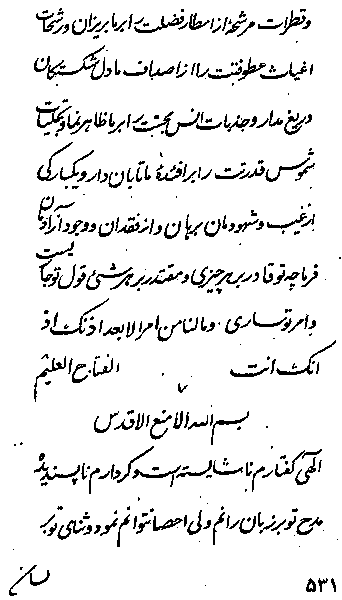 وقطرات مرشحهٔ از امطار فضلت را بر ما بریزان و رشحات
اغیاث عطوفتت را از اصداف ما دل شکستگان
دریغ مدار و جذبات انس محبتت را بر ما ظاهر نما و تجلیات
شموس قدرتت را بر افئدهٔ ما تابان دار و یکبارگی
از غیب و شهودمان برهان و از فقدان و وجود آزادمان
فرما چه تو قادر بر هر چیزی و مقتدر بر هر شیٔ قول تو جاریست
و امر تو ساری و مالنا من امر الا بعد اذنک اذ
انک انت الفتاح العلیم
٧
بسم الله الامنع الاقدس
الهی گفتارم ناشایسته است و کردارم ناپسندیده
مدح تو بر زبان رانم ولی احصا نتوانم نمود و ثنای تو بر
لسان
۵۳۱